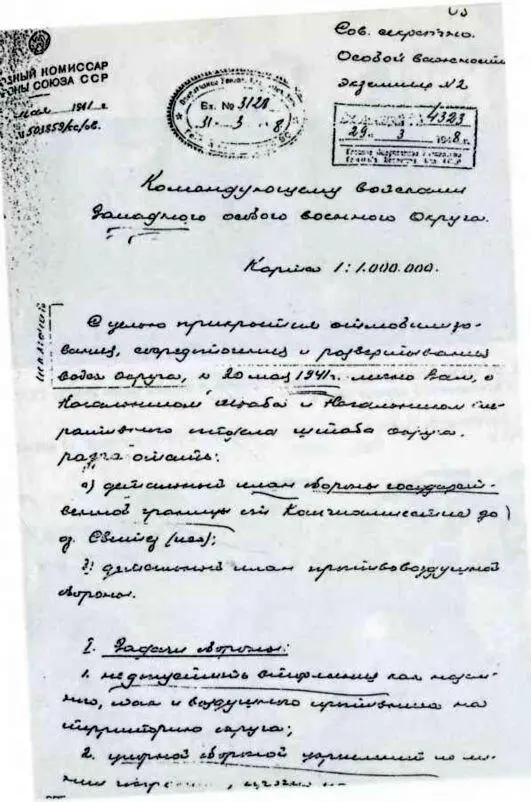 Сов. секретно
Особой важности
Экземпляр №2
НЫЙ КОМИССАР
ОНЫ СОЮЗА ССР
мая 1941 г.
№ 503859/сс/ов.
Вх. № 3128
31 - 3 8
4323
29. 3 1948 г.
Командующему войсками
Западного особого военного Округа.
Карта 1:1.000.000.
С целью прикрытия отмобилизо-
вания, сосредоточения и развертывания
войск округа, к 20 мая 1941 г. лично Вам, с
Начальником штаба и Начальником опе-
ративного отдела штаба округа,
разработать:
а) детальный план обороны государст-
венной границы от Капчиамиестис до
оз. Свитез (иск);
б) детальный план противовоздушной
обороны.
I. Задачи обороны:
1. не допустить вторжения как назем-
ного, так и воздушного противника на
территорию округа;
2. упорной обороной укреплений по ли-
нии